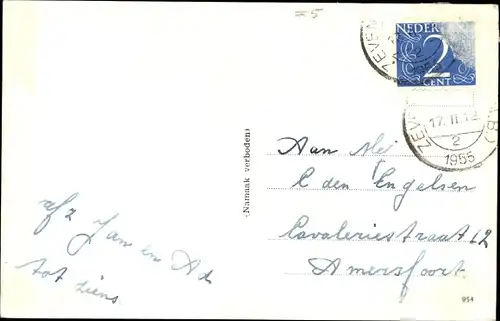 =5
NEDER
2
CENT
ZEVE
17. II. 12
2
1955
(Namaak verboden)
Aan Mej
C den Engelsen
Cavaleriestraat 12
Amersfoort.
afz Jan en Ad
tot ziens
954